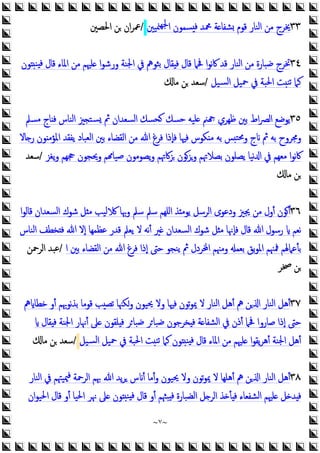 ٣٣يخرج من النار قوم بشفاعة محمد فيسمون الجهنميين /عمران بن الحصين
٣٤تخرج ضبارة من النار قد كانوا فحما قال فيقال بثوهم في الجنة ورشوا عليهم من الماء قال فينبتون
كما تنبت الحبة في حميل السيل /سعد بن مالك
٣٥يوضع الصراط بين ظهري جهنم عليه حسك كحسك السعدان ثم يستجيز الناس فناج مسلم
ومجروح به ثم ناج ومحتبس به منكوس فيها فإذا فرغ الله من القضاء بين العباد يفقد المؤمنون رجالا
كانوا معهم في الدنيا يصلون بصلاتهم ويزكون بزكاتهم ويصومون صيامهم ويحجون حجهم ويغز /سعد
بن مالك
٣٦أكون أول من يجيز ودعوى الرسل يومئذ اللهم سلم سلم وبها كلاليب مثل شوك السعدان قالوا
نعم يا رسول الله قال فإنها مثل شوك السعدان غير أنه لا يعلم قدر عظمها إلا الله فتخطف الناس
بأعمالهم فمنهم الموبق بعمله ومنهم المخردل ثم ينجو حتى إذا فرغ الله من القضاء بين ا /عبد الرحمن
بن صخر
٣٧أهل النار الذين هم أهل النار لا يموتون فيها ولا يحيون ولكنها تصيب قوما بذنوبهم أو خطاياهم
حتى إذا صاروا فحما أذن في الشفاعة فيخرجون ضبائر ضبائر فيلقون على أنهار الجنة فيقال يا
أهل الجنة أهريقوا عليهم من الماء قال فينبتون كما تنبت الحبة في حميل السيل /سعد بن مالك
٣٨أهل النار الذين هم أهلها لا يموتون ولا يحيون وأما أناس يريد الله بهم الرحمة فميتهم في النار
فيدخل عليهم الشفعاء فيأخذ الرجل الضبارة فيبثهم أو قال فينبتون على نهر الحيا أو قال الحيوان
~٧~